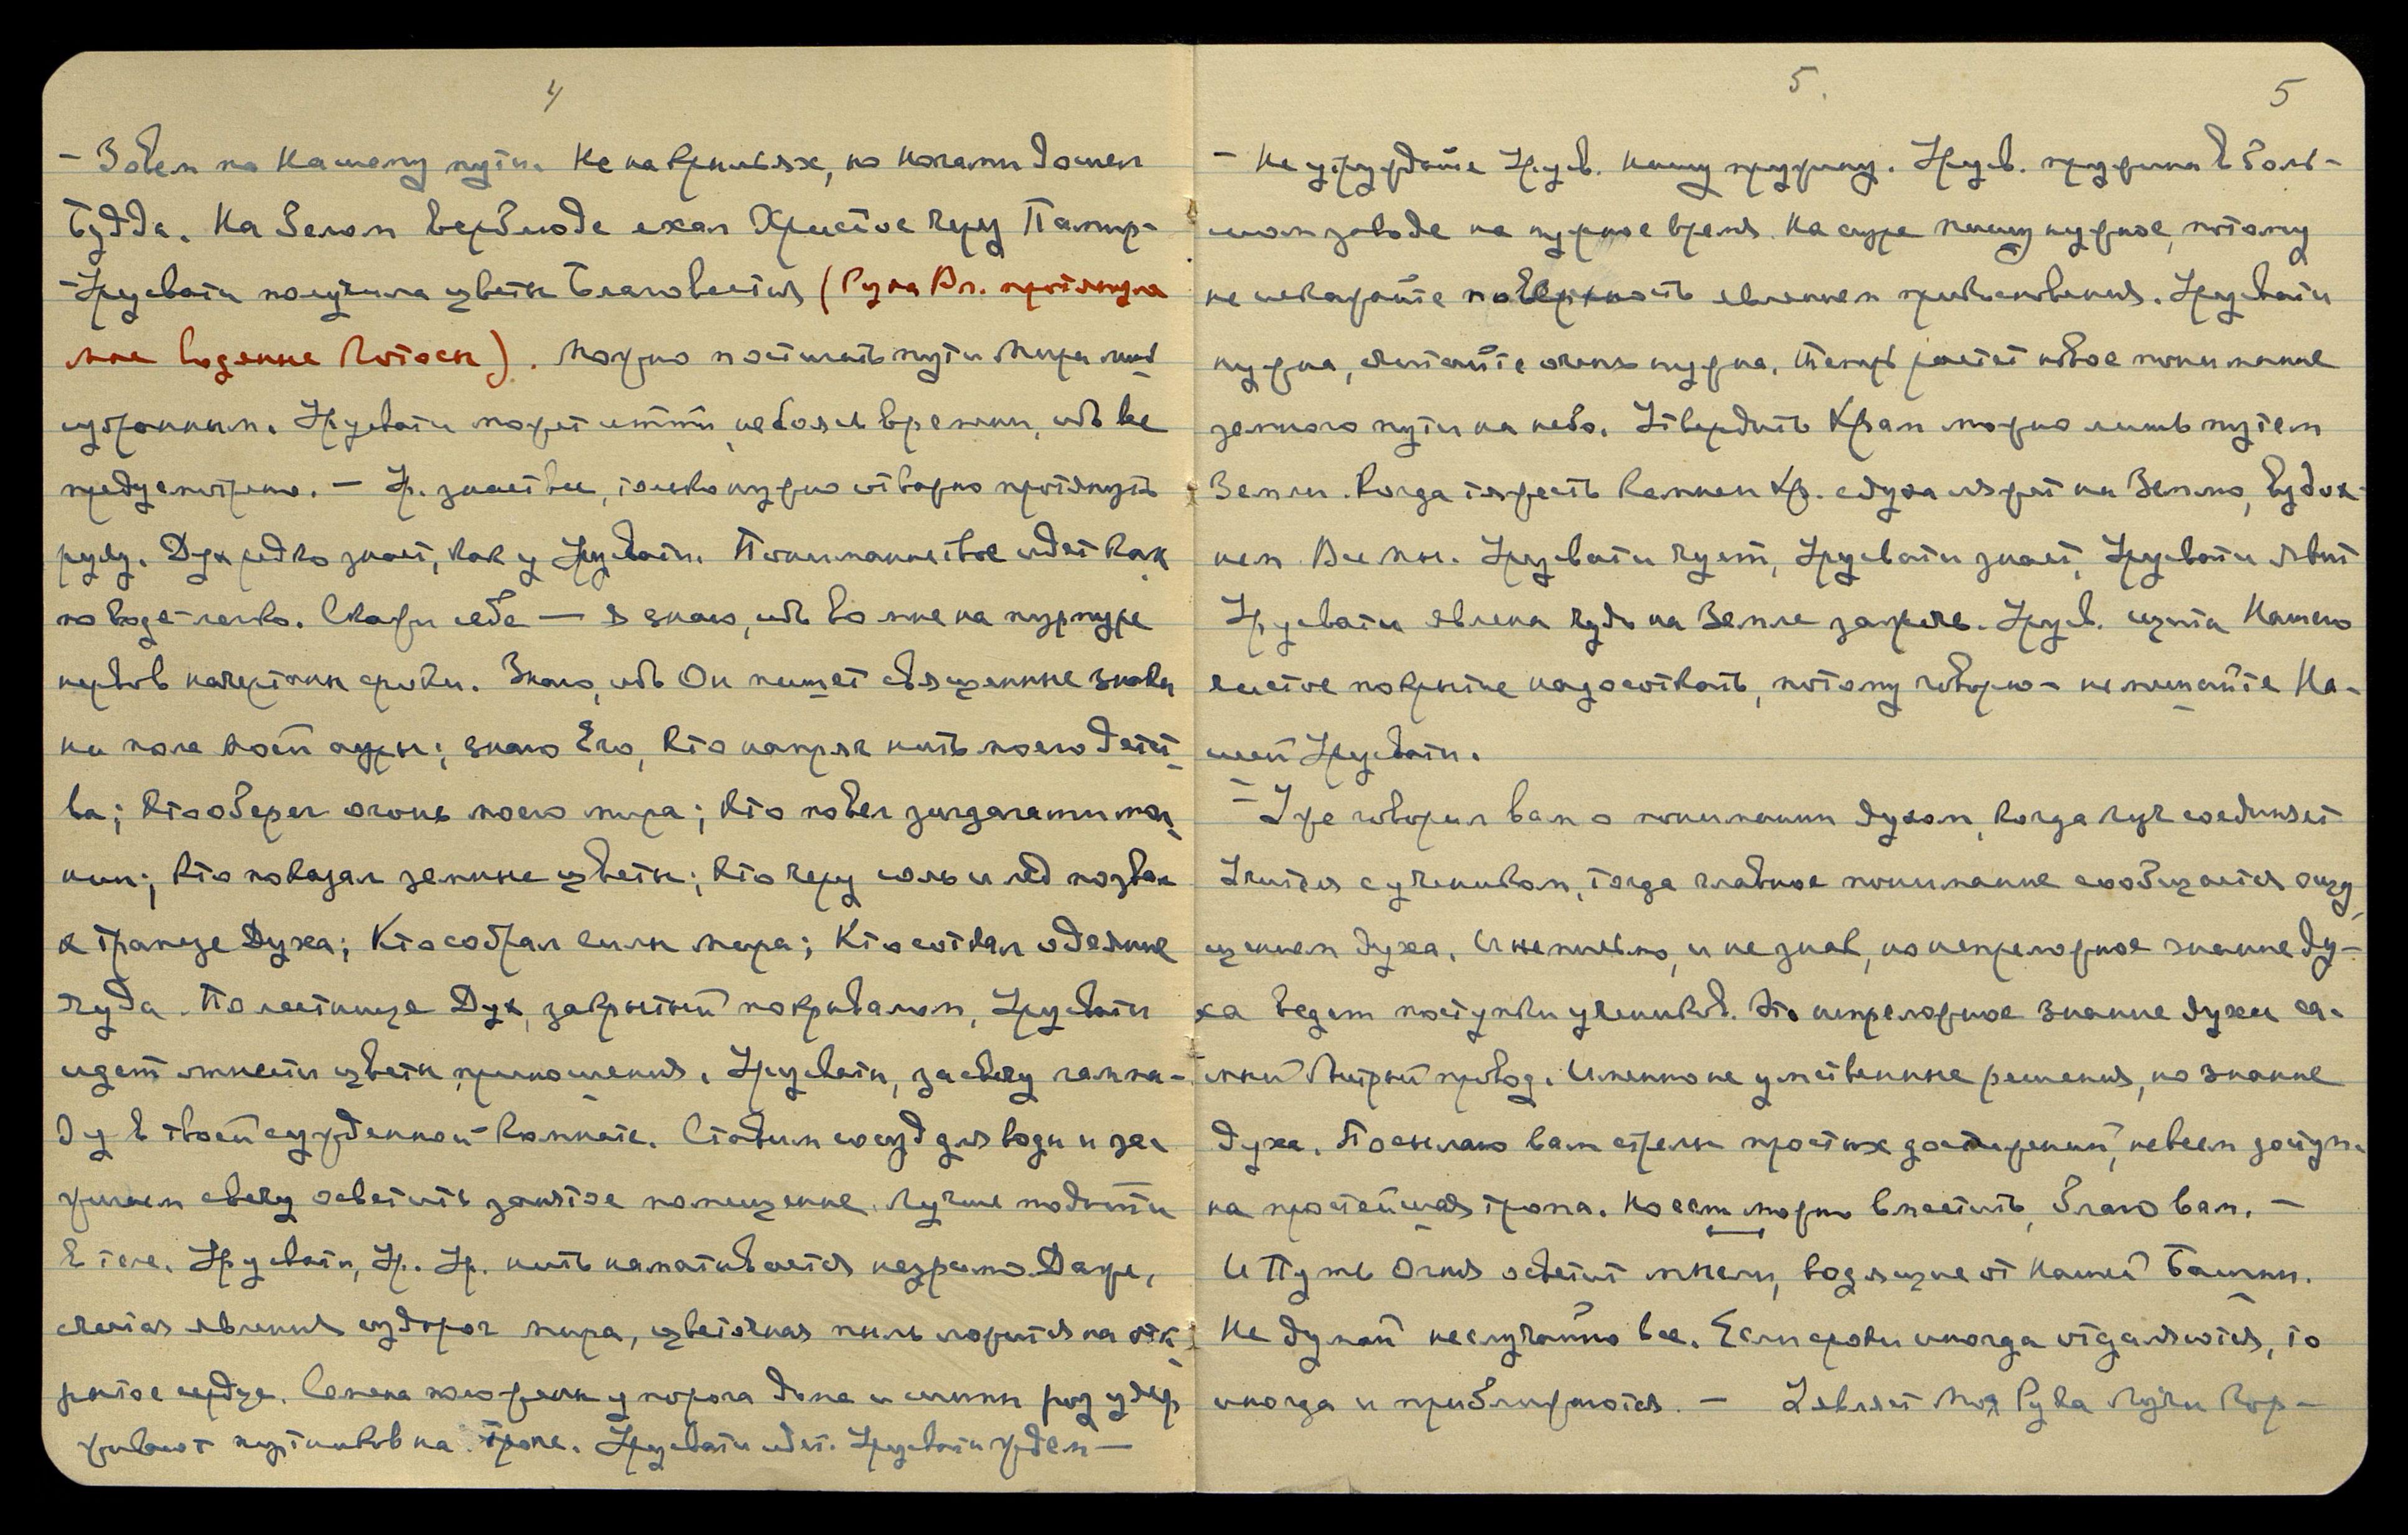 4
– Зовем по Нашему пути. Не на крыльях, но ногами дошел
Будда. На белом верблюде ехал Христос через Памир.
– Урусвати получила цветы Благовестия (Рука Вл. протянула
мне водяные лотосы). Можно постигать пути мира лишь
изустранным. Урусвати может идти, не боясь времени, ибо все
предусмотрено. – Ур. знает все, только нужно отворно протянуть
руку. Дух редко знает, как у Урусвати. Понимание твое идет как
по воде – легко. Скажи себе — я знаю, ибо во мне на пурпуре
нервов начертаны сроки. Знаю, ибо Он пишет священные знаки
на поле моей ауры; знаю Его, кто напряг нить моего детст
ва; кто оберег огонь моего мира; кто повел зигзагами мол
нии; кто показал земные цветы; кто через соль и лёд позвал
к трапезе Духа; Кто собрал силы мира; Кто соткал одеяние
чуда. По лестнице Дух, закрытый покрывалом, Урусвати
идет отнести цветы приношения. Урусвати, засвечу лампа–
ду в твоей сужденной комнате. Ставим сосуд для воды и за
жигаем свечу осветить занятое помещение. Лучше подойти
в теле. Урусвати, Ур. Ур. нить наматывается незримо. Даже,
считая явления судорог мира, цветочная пыль ложится на отк
рытое сердце. Семена положены у порога дома и шипы роз удер
живают путников на тропе. Урусвати идет. Урусвати ждем —
5.
5
– Не утруждайте Урусв. нашу пружину. Урусв. пружина в боль–
шом заводе на нужное время. На ауре пишу нужное, потому
не искажайте поверхность явлением прикосновения. Урусвати
нужна, считайте очень нужна. Теперь растет новое понимание
земного пути на небо. Утвердить Храм можно лишь путем
Земли. Когда тяжесть камней Хр. с духа ляжет на Землю, вздох–
нем Все мы. Урусвати чует, Урусвати знает, Урусвати явит
Урусвати явлена чудо на Земле зажечь. Урусв. щита Нашего
чистое покрытие надо соткать, потому говорю – не мешайте На–
шей Урусвати.
– Уже говорил вам о понимании духом, когда луч соединяет
Учителя с учеником, тогда главное понимание сообщается ощу
щением духа. И не письмо, и не знак, но непреложное знание ду–
ха ведет поступки учеников. Это непреложное знание духа са–
мый быстрый провод. Именно не умственные решения, но знание
духа. Посылаю вам стрелы простых достижений, не всем доступ–
на простейшая тропа. Но если можно вместить, благо вам. –
И Путь Огня осветит мысли, водящие от нашей Башни.
Не думай неслучайно все. Если сроки иногда отдаляются, то
иногда и приближаются. – Являет Моя Рука Лучи Кор–